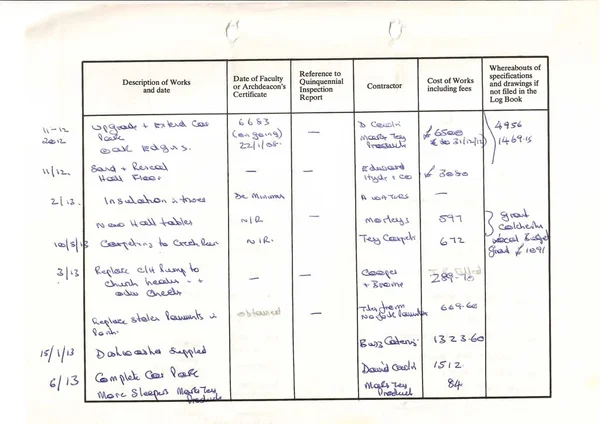 Description of Works
and date
Date of Faculty
or Archdeacon's
Certificate
Reference to
Quinquennial
Inspection
Report
Contractor
Cost of Works
including fees
Whereabouts of
specifications
and drawings if
not filed in the
Log Book
11-12
2012
Upgrade + Extend Car
Park
Oak Edging.
6683
(ongoing)
22/1/08.
—
D Cauld
Marks Tey
Products
£ 6500
to 31/12/12
4956
1469.15
11/12.
Sand + Reseal
Hall Floor
—
—
Edward
Hyde + Co
£ 3080
2/13.
Insulation
De Minimis
—
New Hall tables
N/R
—
Morleys
597
grant
10/5/13
Carpeting to Creche
N/R.
—
Tey Carpets
672
local Budget
grant £ 1091
3/13
Replace C/H Pump to
church
—
—
Cooper
289-70
Replace stolen
obtained
669-60
15/1/13
Dishwasher Supplied
1323-60
6/13
Complete Car Park
David Cauld
1512
More Sleepers Marks Tey
Products
Marks Tey
Product
84